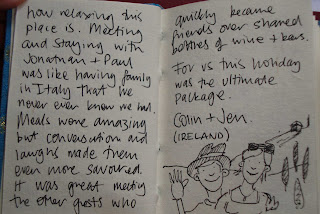 how relaxing this
place is. Meeting
and staying with
Jonathan + Paul
was like having family
in Italy that we
never even knew we had.
Meals were amazing
but conversation and
laughs made them
even more savoured.
It was great meeting
the other guests who
quickly became
friends over shared
bottles of wine + beers.
For us this holiday
was the ultimate
package.
Colin + Jen.
(IRELAND)